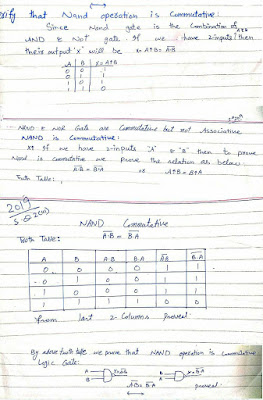 that Nand operation is Commutative:
Since Nand gate is the Combination of
AND & NOT gate. If we have 2-inputs then
their output 'x' will be x = A·B = A̅·̅B̅
A B X = A·B
0 0 1
0 1 1
1 0 1
1 1 0
NAND & NOR Gate are Commutative but not Associative
NAND is Commutative:
If we have 2-inputs 'A' & 'B' then to prove
Nand is commutative we prove the relation as below:
A̅·̅B̅ = B̅·̅A̅
Truth Table:
2019
NAND Commutative
A̅·̅B̅ = B̅·̅A̅
Truth Table:
A B A·B B·A A̅·̅B̅ B̅·̅A̅
0 0 0 0 1 1
0 1 0 0 1 1
1 0 0 0 1 1
1 1 1 1 0 0
From last 2-Columns proved.
By above truth table we prove that NAND operation is Commutative
Logic Gate:
A̅·̅B̅ = B̅·̅A̅ proved.